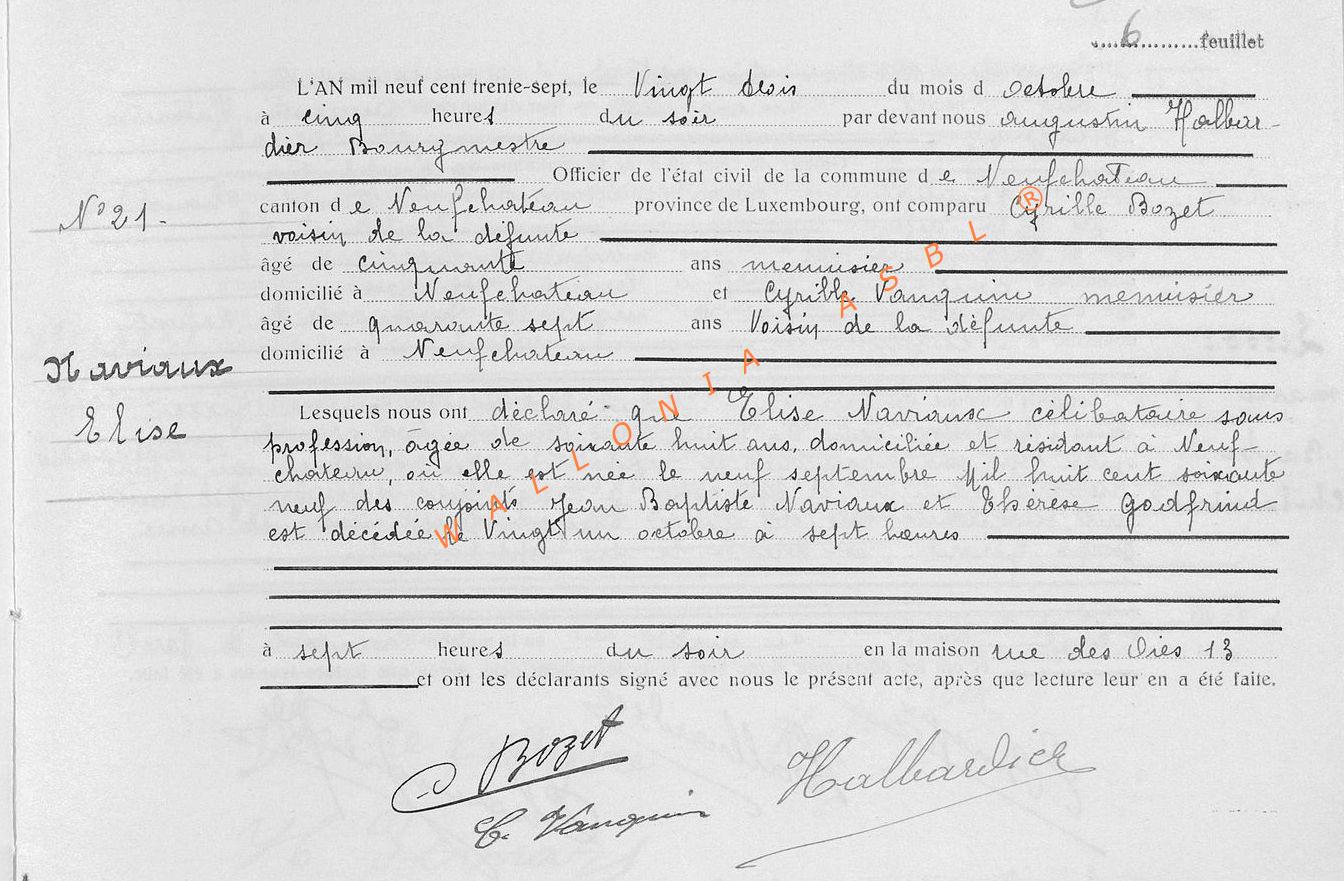 6 feuillet
L'AN mil neuf cent trente-sept, le Vingt deux du mois d octobre
à cinq heures du soir par devant nous Augustin Halbar-
dier Bourgmestre
Officier de l'état civil de la commune de Neufchateau
N° 21.
canton de Neufchateau province de Luxembourg, ont comparu Cyrille Bozet
voisin de la défunte
âgé de cinquante ans menuisier
domicilié à Neufchateau et Cyrille Vanquin menuisier
âgé de quarante sept ans Voisin de la défunte
domicilié à Neufchateau
Naviaux
Elise
Lesquels nous ont déclaré que Elise Naviaux célibataire sans
profession, âgée de soixante huit ans, domiciliée et résidant à Neuf-
chateau, où elle est née le neuf septembre Mil huit cent soixante
neuf des conjoints Jean Baptiste Naviaux et Thérèse Godfrind
est décédée le Vingt un octobre à sept heures
à sept heures du soir en la maison rue des Oies 13
et ont les déclarants signé avec nous le présent acte, après que lecture leur en a été faite.
C Bozet
Halbardier
C. Vanquin
WALLONIA ASBL ®